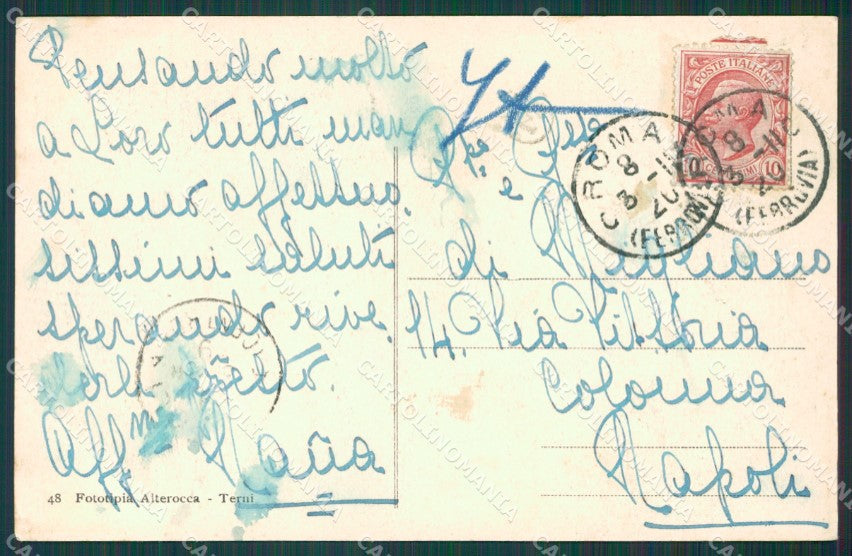 Pensando molto
a Loro tutti man
diamo affettuo.
sissimi saluti
sperando rive.
derli presto.
Aff.me
48 Fototipia Alterocca - Terni
POSTE ITALIANE
10
ROMA
8 - III
20
(FERROVIA)
e
di
14. Via Vittoria
Colonna
Napoli
CARTOLINOMANIA